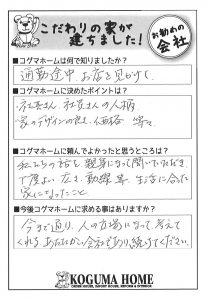 こだわりの家が
建ちました！
お勧めの
会社
■コグマホームは何で知りましたか？
通勤途中 お店を見かけて
■コグマホームに決めたポイントは？
・社長さん、社員さんの人柄
・家のデザインの良さ、価格 等々
■コグマホームに頼んでよかったと思うところは？
私たちの話を、親身になって聞いていただき
丁度よい広さ、動線等、生活に合った
家になったこと
■今後コグマホームに求める事はありますか？
今まで通り、人の立場になって考えて
くれる、あたたかい会社であり続けてください。
KOGUMA HOME
ORDER HOUSE, IMPORT HOUSE, REFORM & EXTERIOR